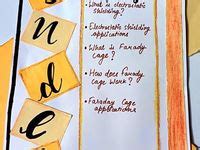 n
d
e
• What is electrostatic
shielding?
• Electrostatic shielding
applications
• What is Farady
cage?
• How does Faraday
cage work?
• Faraday Cage
applications